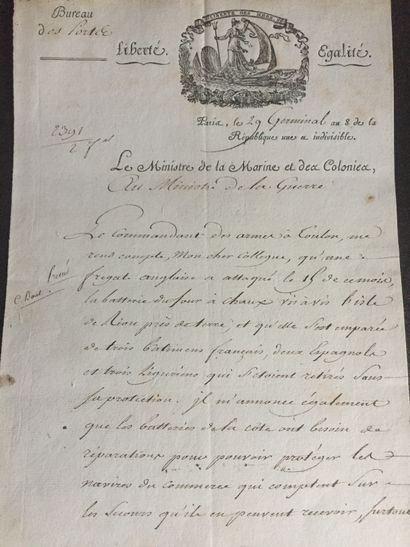 Bureau
des Ports
LIBERTÉ DES MERS
Liberté.
Egalité.
Paris, le 29 Germinal an 8 de la
République une et indivisible.
2391
Le Ministre de la Marine et des Colonies,
Au Ministre de la Guerre
Le Commandant des armes à Toulon, me
rend compte, Mon cher Collègue, qu'une
frégate anglaise a attaqué le 15 de ce mois,
la batterie du four à chaux vis à vis l'isle
de Riou près de terre; et qu'elle s'est emparée
de trois bâtimens français, deux Espagnols
et trois Liguriens qui s'étoient retirés sous
sa protection. Il m'annonce également
que les batteries de la côte ont besoin de
réparations pour pouvoir protéger les
navires du commerce qui comptent sur
les secours qu'ils en peuvent recevoir, surtout